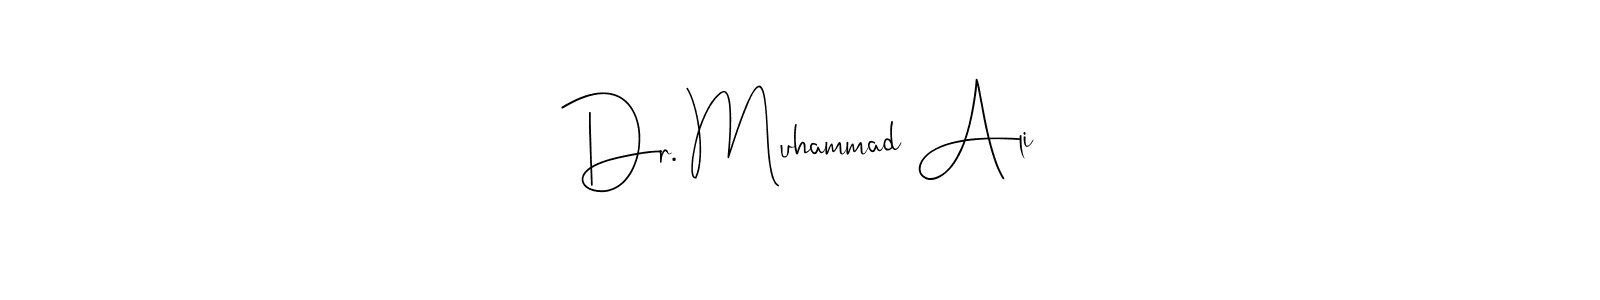 Dr. Muhammad Ali